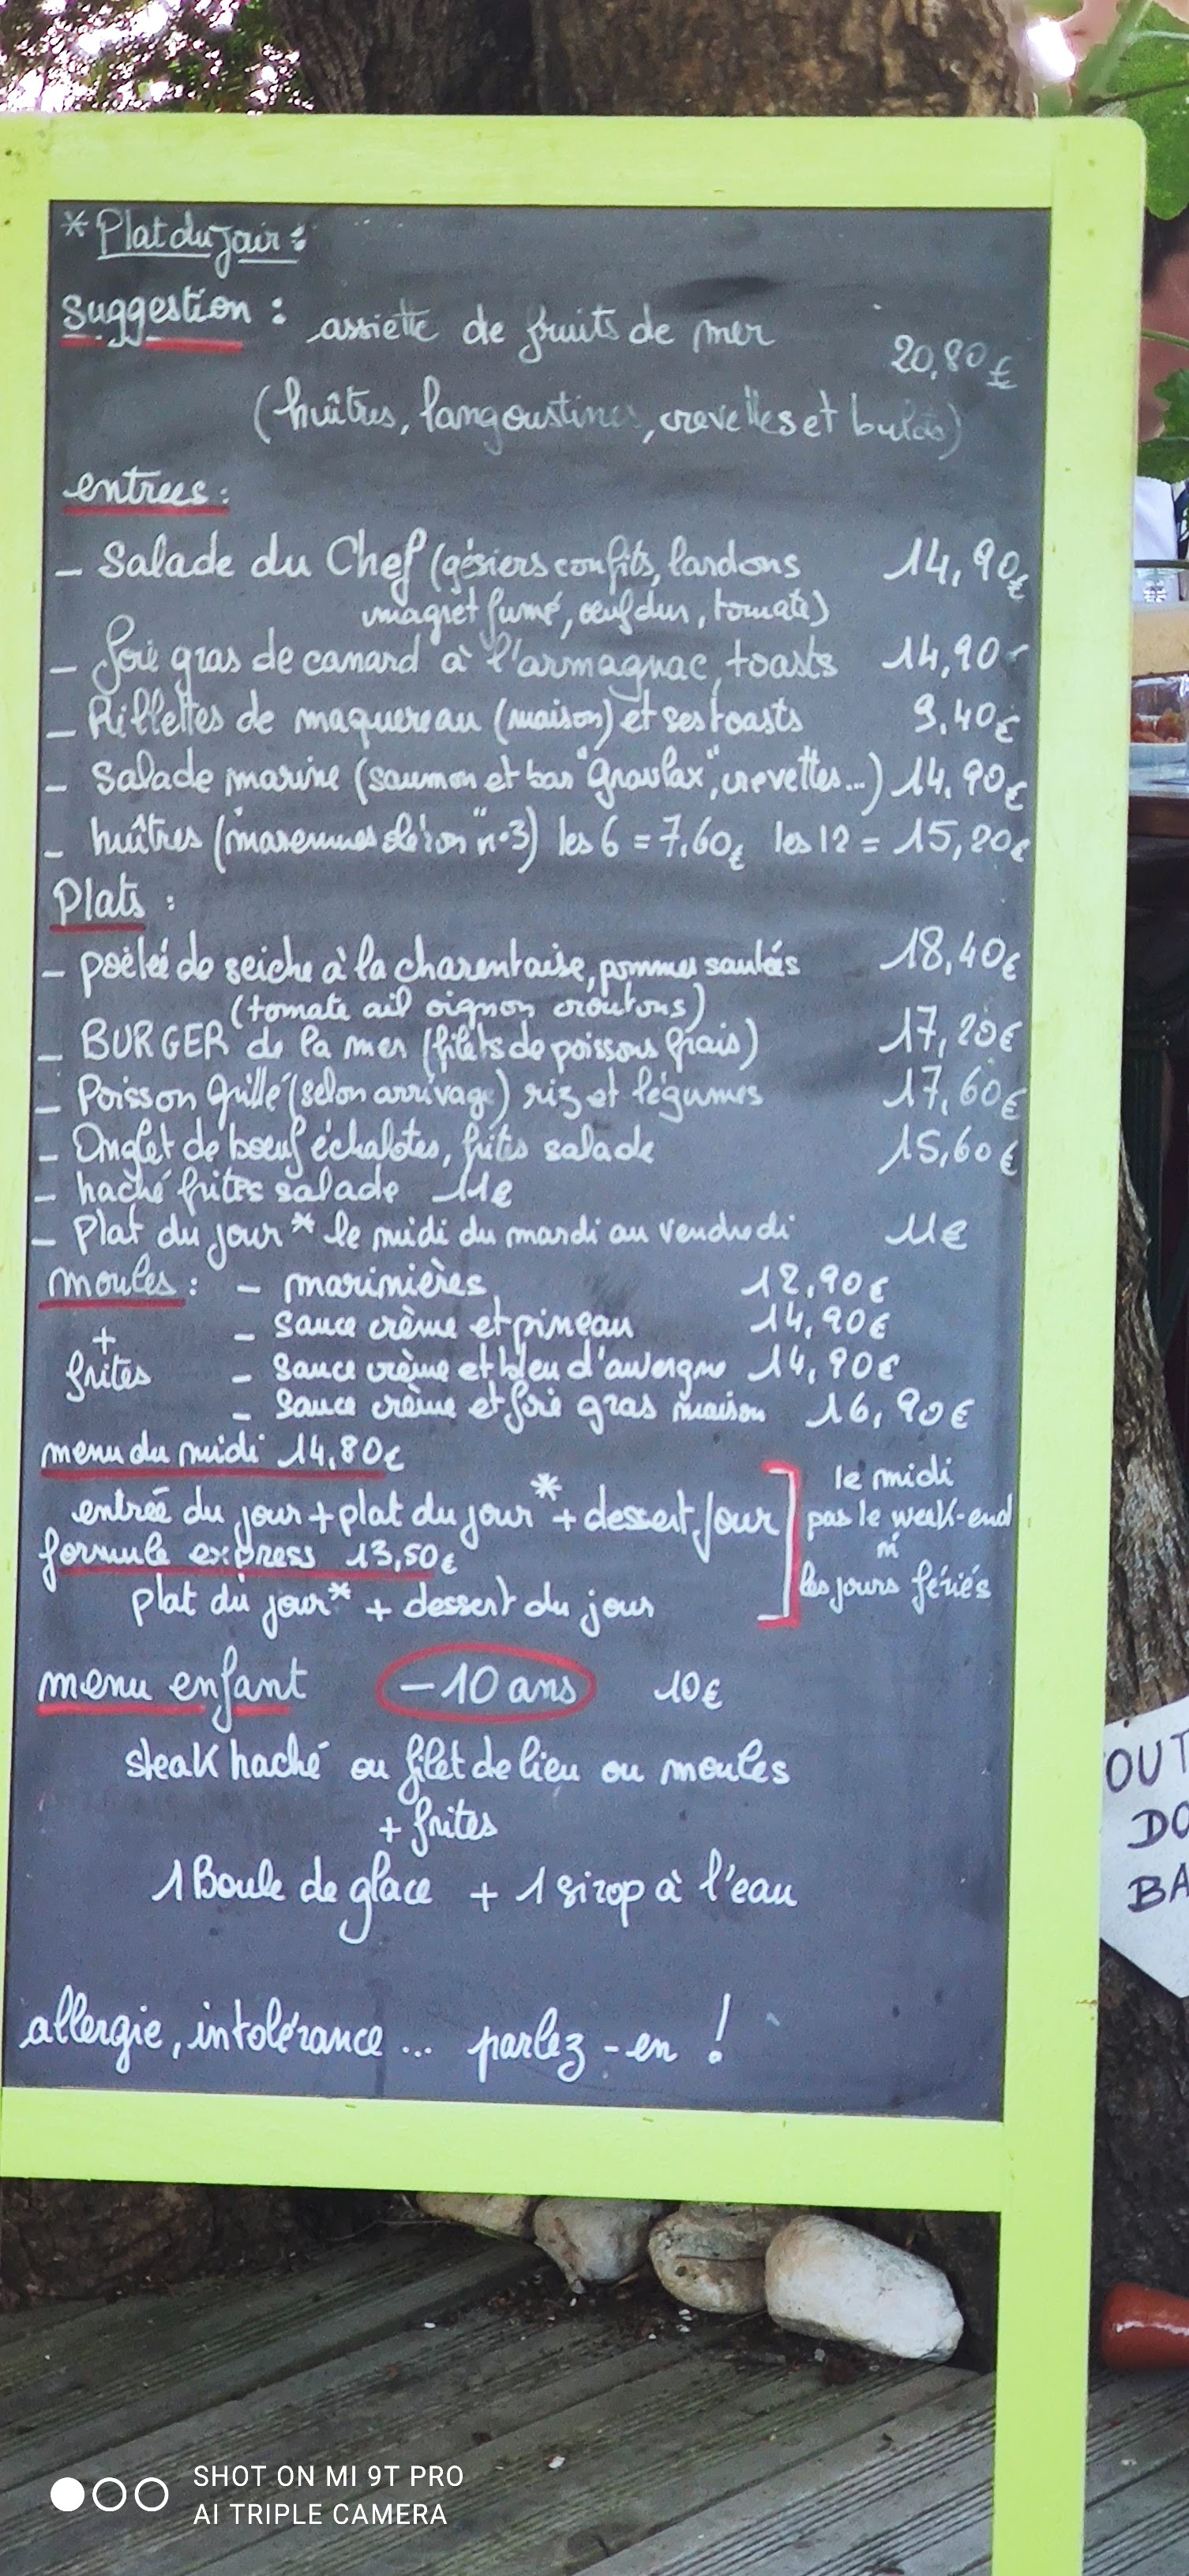 *Plat du jour :
Suggestion : assiette de fruits de mer 20,80€
(huîtres, langoustines, crevettes et bulots)
entrees :
- Salade du Chef (gésiers confits, lardons 14,90€
magret fumé, œuf dur, tomate)
- foie gras de canard à l'armagnac, toasts 14,90€
- Rillettes de maquereau (maison) et ses toasts 9,40€
- Salade marine (saumon et bar "gravlax", crevettes...) 14,90€
- huîtres (marennes oléron "n°3) les 6 = 7,60€ les 12 = 15,20€
Plats :
- poêlée de seiche à la charentaise, pommes sautées 18,40€
(tomate ail oignon croûtons)
- BURGER de la mer (filets de poissons frais) 17,20€
- Poisson Grillé (selon arrivage) riz et légumes 17,60€
- Onglet de boeuf échalotes, frites salade 15,60€
- haché frites salade 11€
- Plat du jour * le midi du mardi au vendredi 11€
moules : - marinières 12,90€
+ - Sauce crème et pineau 14,90€
frites - Sauce crème et bleu d'auvergne 14,90€
- Sauce crème et foie gras maison 16,90€
menu du midi 14,80€
entrée du jour + plat du jour* + dessert jour
formule express 13,50€
plat du jour* + dessert du jour
le midi
pas le week-end
ni
les jours fériés
menu enfant -10 ans 10€
steak haché ou filet de lieu ou moules
+ frites
1 Boule de glace + 1 sirop à l'eau
allergie, intolérance ... parlez-en !
OUT
DO
BA
SHOT ON MI 9T PRO
AI TRIPLE CAMERA